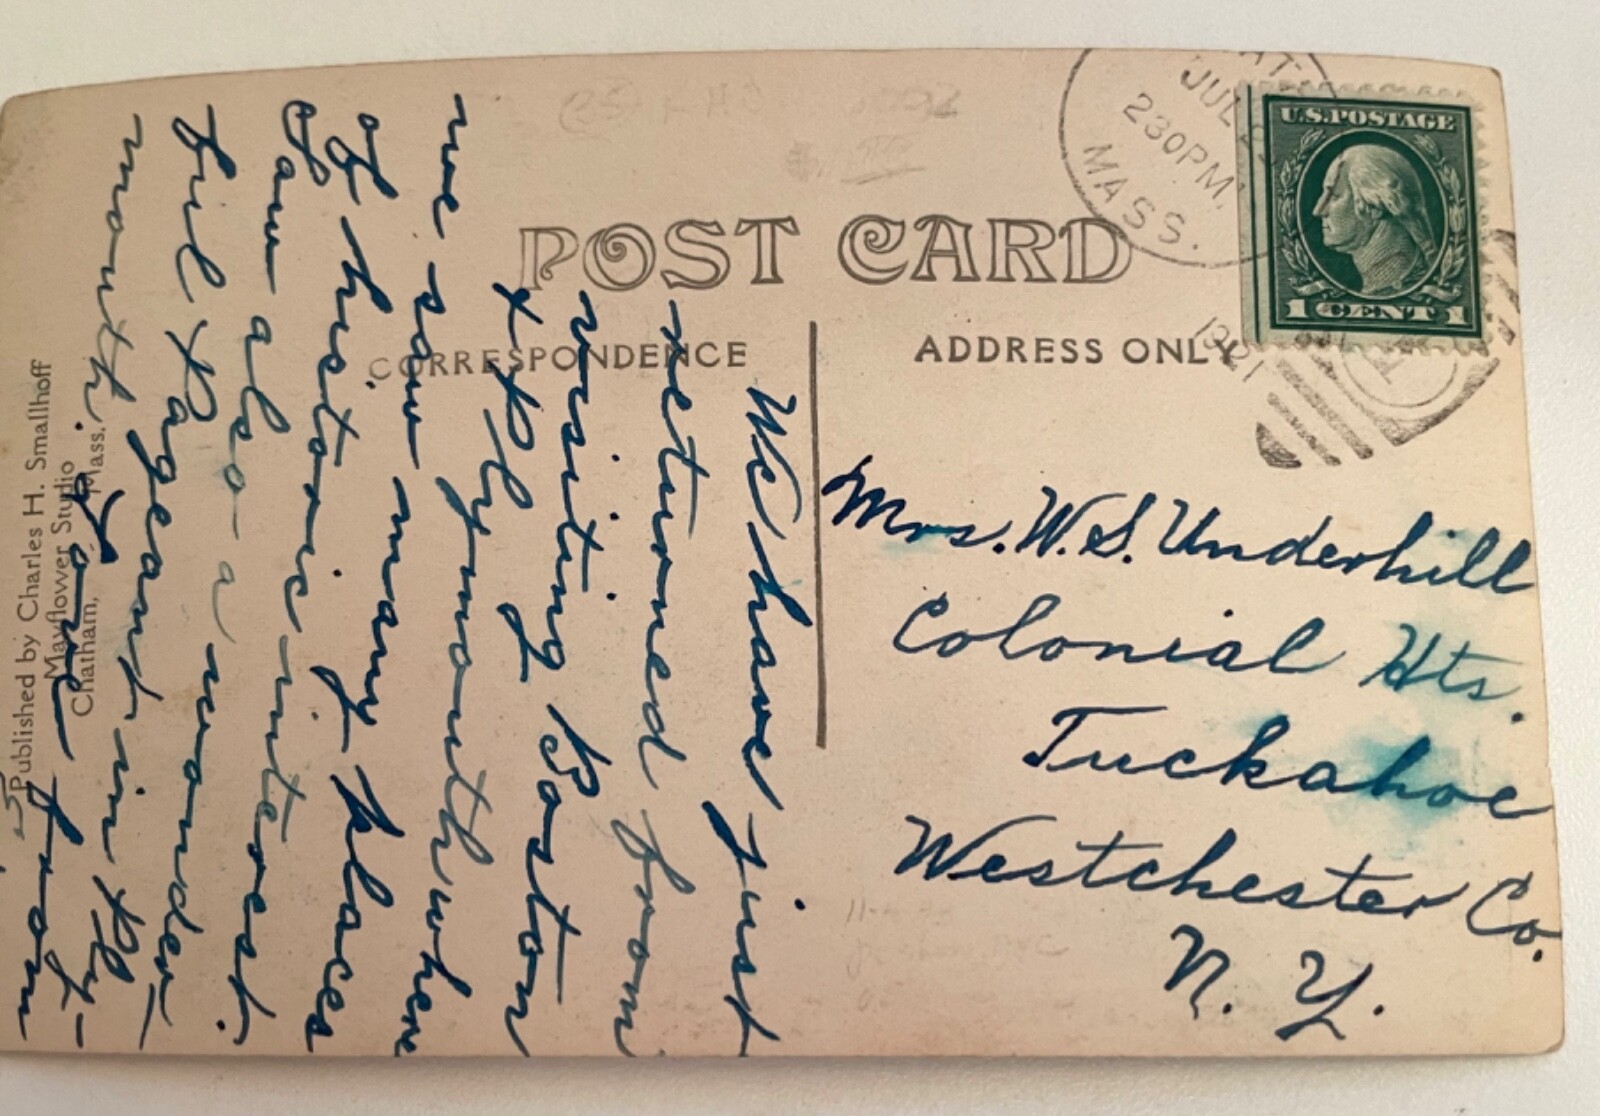 POST CARD
CORRESPONDENCE
ADDRESS ONLY
JUL
230 PM.
MASS.
1921
U.S. POSTAGE
1 CENT 1
Mrs. W. S. Underhill
Colonial Hts.
Tuckahoe
Westchester Co.
N. Y.
We have just
returned from
visiting Boston
+ Plymouth where
we saw many places
of historic interest.
Saw also a wonder-
ful Pageant in Ply-
mouth.
Love from
Published by Charles H. Smallhoff
Mayflower Studio
Chatham, Mass.